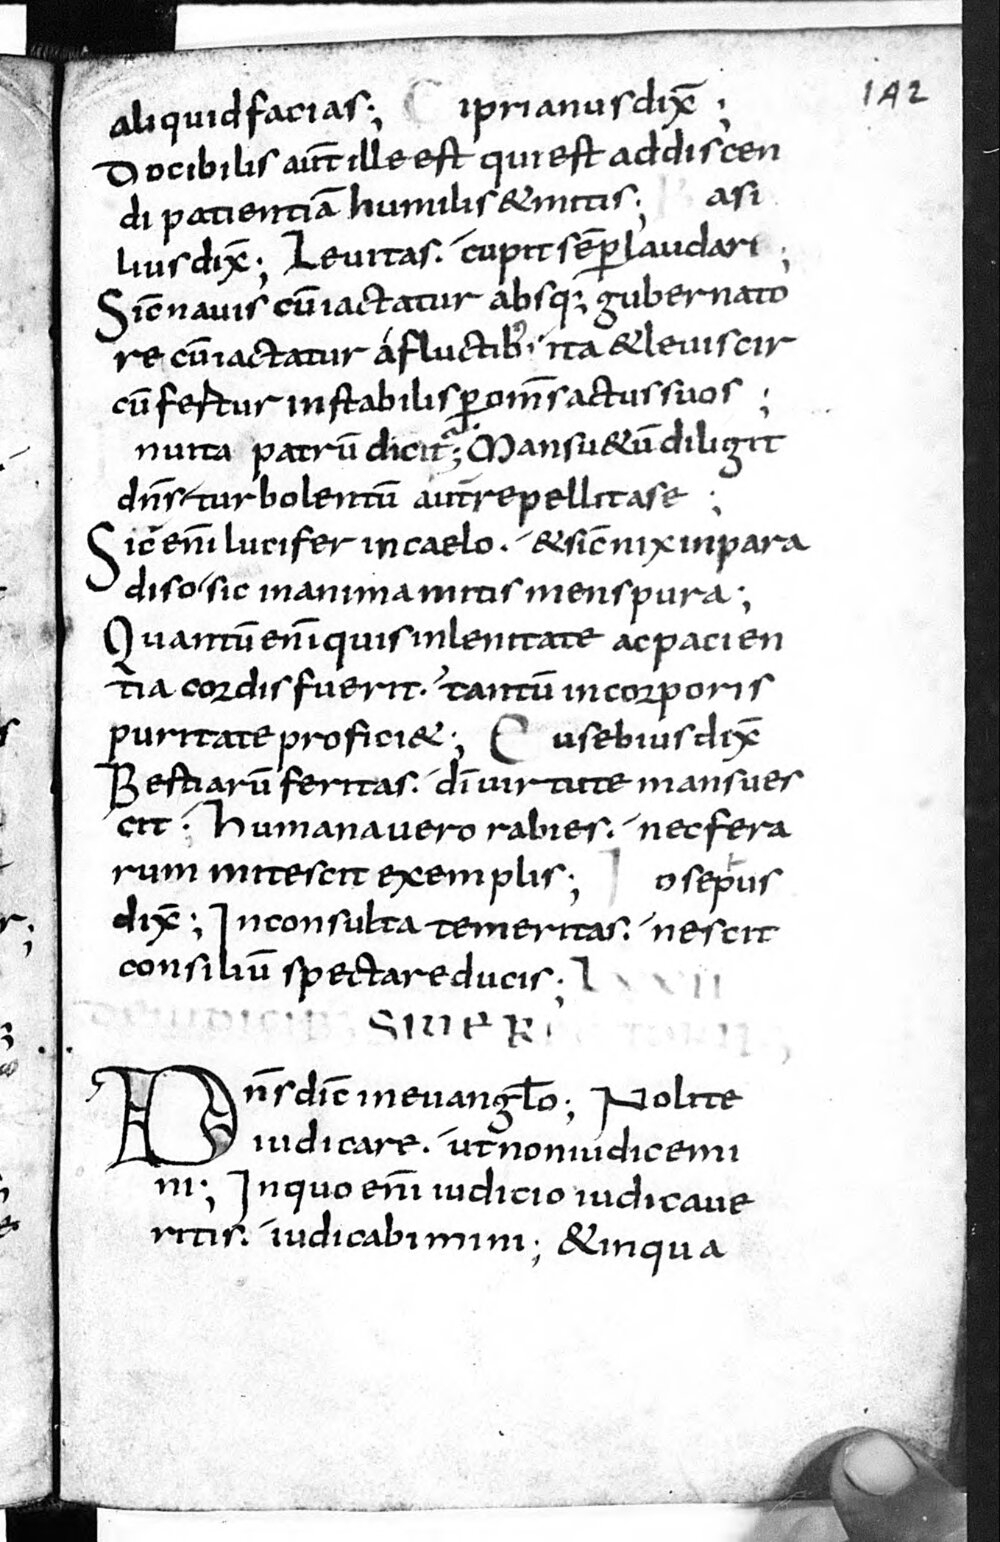 142
aliquid facias; Ciprianus dix̄;
Docibilis aut̄ ille est qui est ad discen
di patientiā humilis & mitis; Basi
lius dix̄; Leuitas. cupit sēꝑ laudari;
Sic̄ nauis cū iactatur absq; gubernato
re cū iactatur a fluctib; ita & leuis cir
cū fertur instabilis ꝑ om̄s actus suos;
nuita patrū dicit; Mansu&ū diligit
dn̄s turbolentū aut̄ repellit a se;
Sic̄ eni̅ lucifer in caelo. & sic̄ nix in para
diso sic in anima mitis mens pura;
Quantū eni̅ quis in lenitate ac pacien
tia cordis fuerit. tantū in corporis
puritate profici&; Eusebius dix̄
Bestiarū feritas. dī uirtute mansues
cit. humana uero rabies. nec fera
rum mitescit exemplis; Iosephus
dix̄; Inconsulta temeritas. nescit
consiliū spectare ducis; LXXII
DE IUDICIB;
SIUE R
Dn̄s dic̄ in euangl̄o; Nolite
iudicare. ut non iudicemi
ni; In quo eni̅ iudicio iudicaue
ritis. iudicabimini; & in qua